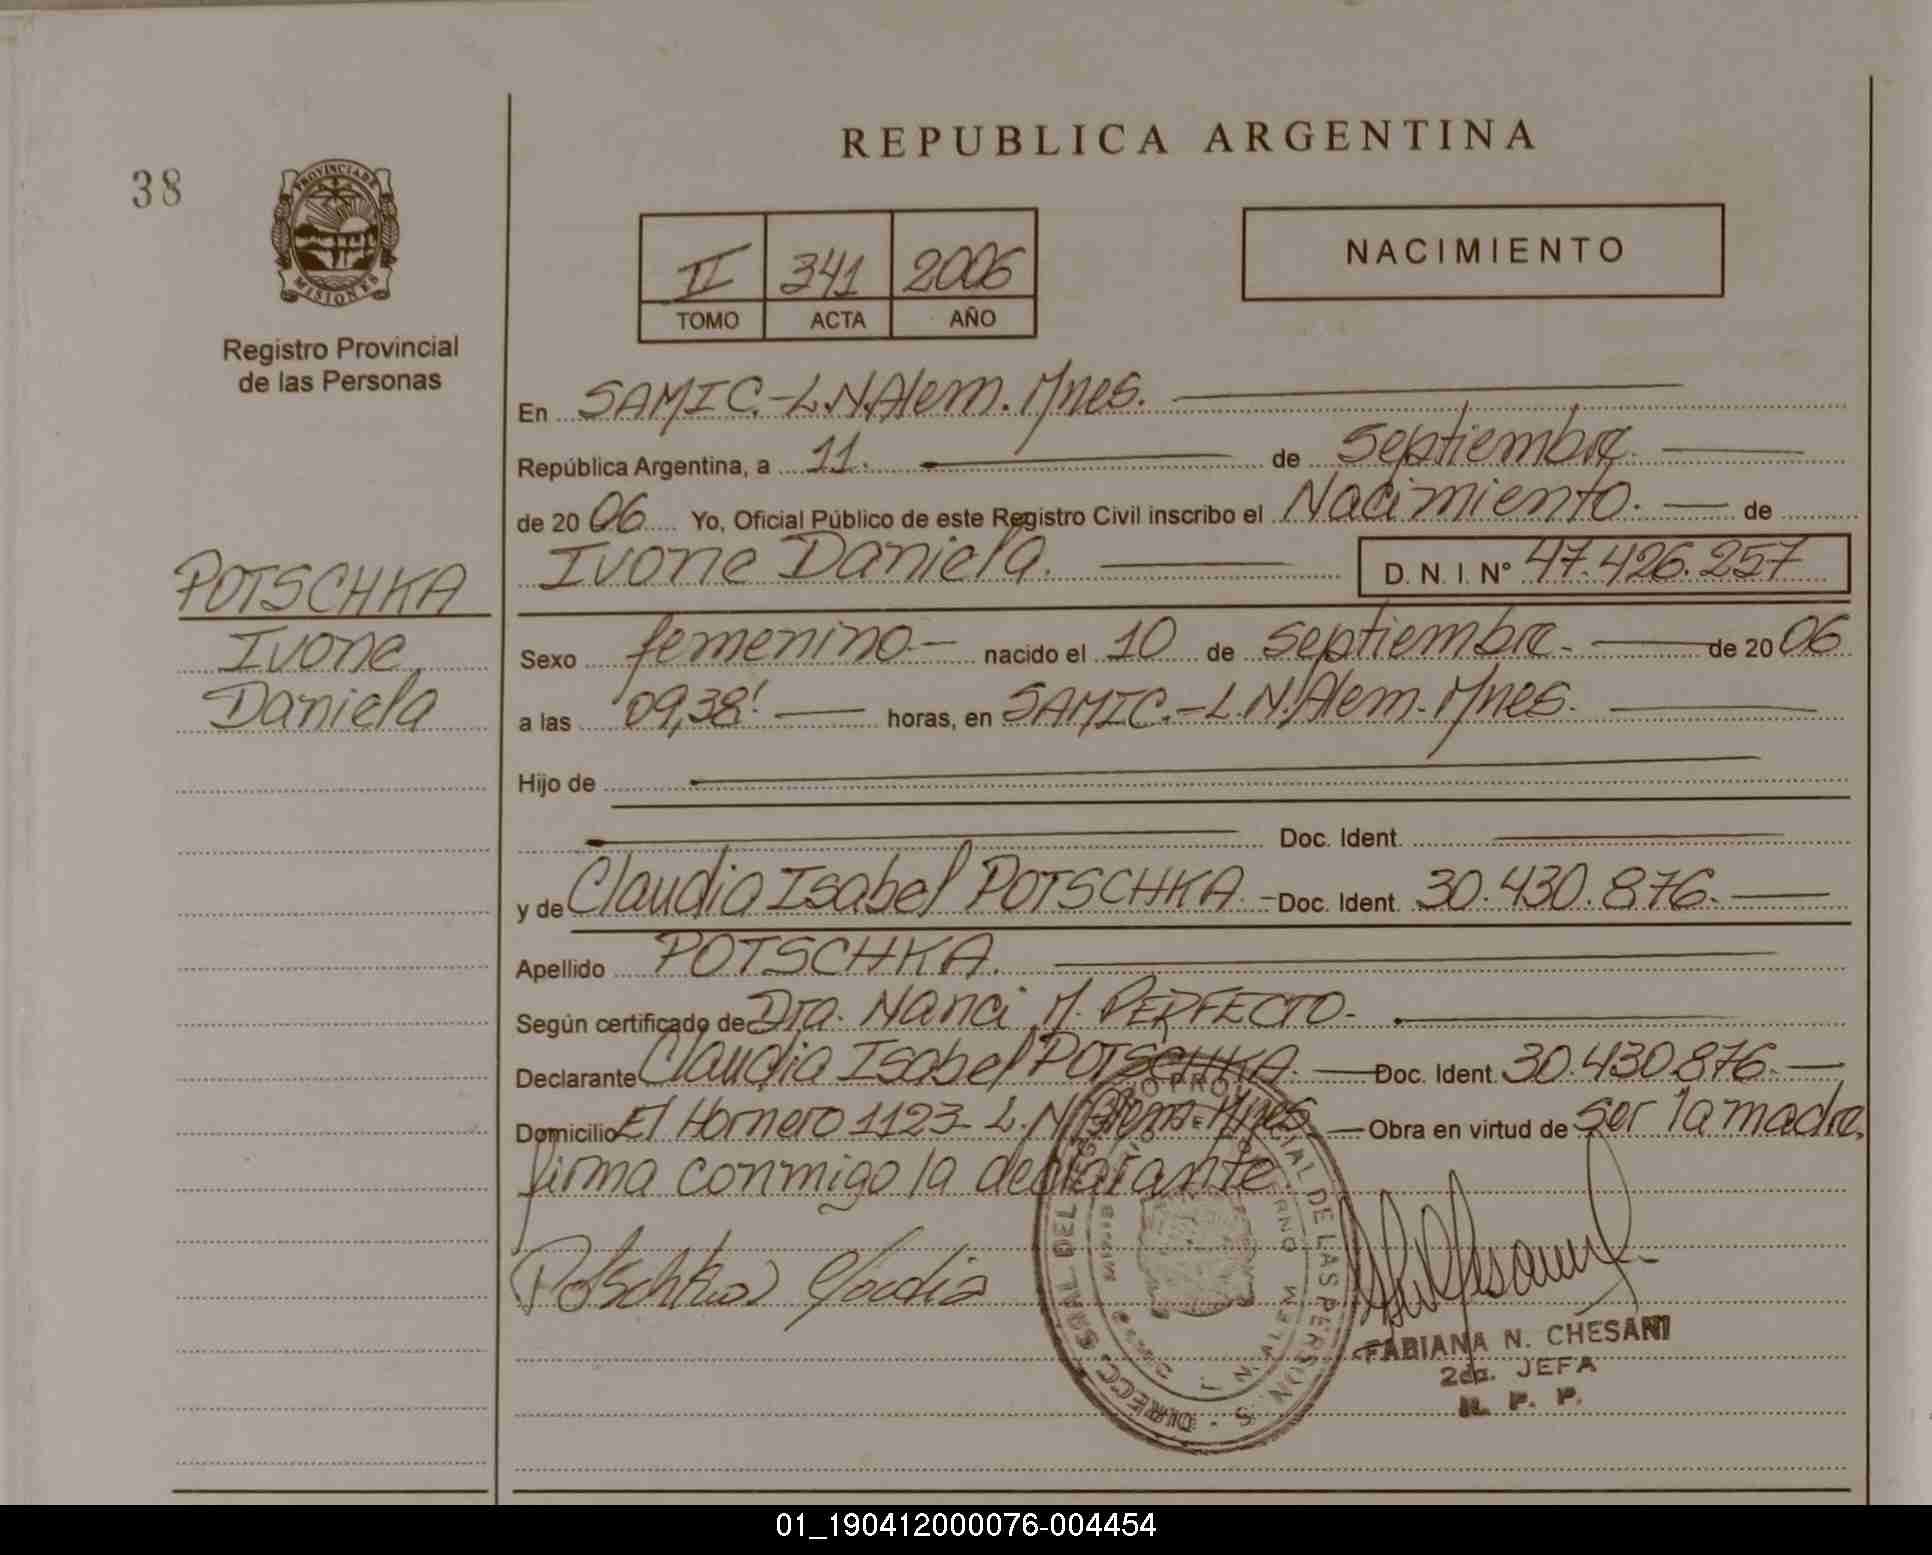 REPUBLICA ARGENTINA
38
PROVINCIA DE
MISIONES
Registro Provincial
de las Personas
II 341 2006
TOMO ACTA AÑO
NACIMIENTO
En SAMIC.-L.N.Alem.Mnes.
República Argentina, a 11. de septiembre.
de 2006 Yo, Oficial Público de este Registro Civil inscribo el Nacimiento. de
Ivone Daniela. D. N. I. Nº 47.426.257
POTSCHKA
Ivone
Daniela
Sexo femenino.- nacido el 10 de septiembre.- de 2006
a las 09,38' horas, en SAMIC.-L.N.Alem.Mnes.
Hijo de
Doc. Ident.
y de Claudia Isabel POTSCHKA.- Doc. Ident. 30.430.876.
Apellido POTSCHKA.
Según certificado de Dra. Nanci M. PERFECTO.-
Declarante Claudia Isabel POTSCHKA. Doc. Ident. 30.430.876.
Domicilio El Hornero 1123- L.N.Alem-Mnes. Obra en virtud de ser la madre,
firma conmigo la declarante
Potschka Claudia
DIRECC. GRAL. DEL REGISTRO PROVINCIAL DE LAS PERSONAS
L. N. ALEM
FABIANA N. CHESANI
2da. JEFA
R. P. P.
01_190412000076-004454